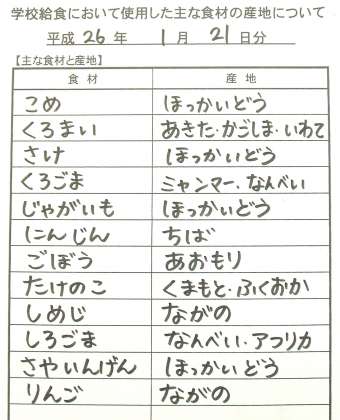 学校給食において使用した主な食材の産地について
平成 26 年 1 月 21 日分
【主な食材と産地】
食材 産地
こめ ほっかいどう
くろまい あきた・かごしま・いわて
さけ ほっかいどう
くろごま ミャンマー、なんべい
じゃがいも ほっかいどう
にんじん ちば
ごぼう あおもり
たけのこ くまもと・ふくおか
しめじ ながの
しろごま なんべい・アフリカ
さやいんげん ほっかいどう
りんご ながの